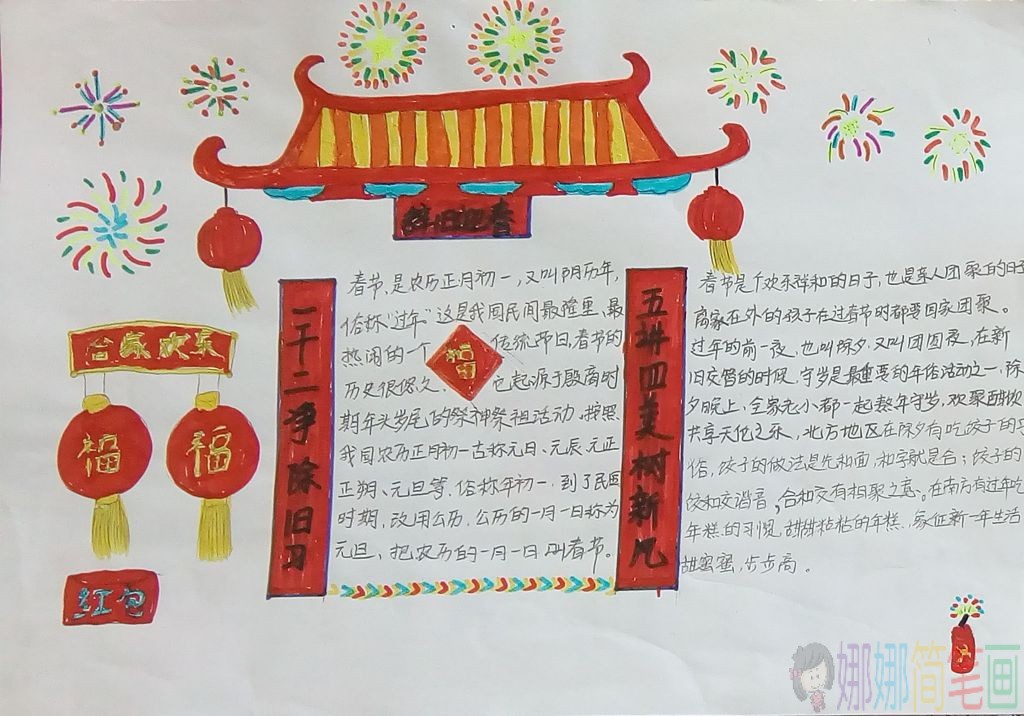 辞旧迎春
合家欢乐
福
福
红包
一干二净除旧习
五讲四美树新风
春节,是农历正月初一,又叫阴历年,
俗称"过年"这是我国民间最隆重、最
热闹的一个 传统节日,春节的
福
历史很悠久、 它起源于殷商时
期年头岁尾的祭神祭祖活动.按照
我国农历正月初一古称元日、元辰、元正
正朔、元旦等,俗称年初一,到了民国
时期,改用公历,公历的一月一日称为
元旦,把农历的一月一日叫春节。
春节是个欢乐祥和的日子,也是亲人团聚的日子
离家在外的孩子在过春节时都要回家团聚。
过年的前一夜,也叫除夕,又叫团圆夜,在新
旧交替的时候,守岁是最重要的年俗活动之一,除
夕晚上,全家老小都一起熬年守岁,欢聚酣饮
共享天伦之乐,北方地区在除夕有吃饺子的习
俗,饺子的做法是先和面,和字就是合;饺子的
饺和交谐音,合和交有相聚之意。在南方有过年吃
年糕的习惯,甜甜粘粘的年糕,象征新一年生活
甜蜜蜜,步步高。
娜娜简笔画